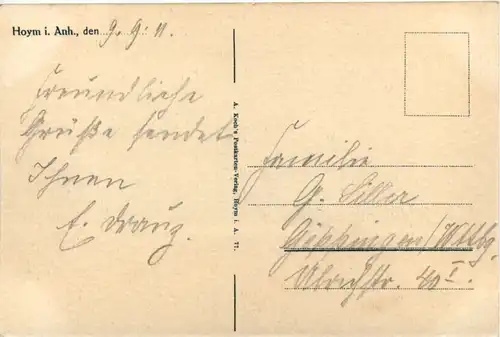 Hoym i. Anh., den 9. 9. 11.
Freundliche
Grüße sendet
Ihnen
E. Drauz.
A. Koch's Postkarten-Verlag, Hoym i. A. 71.
Familie
G.
Göppingen/Wttbg.
Ulrichstr. 40 I.